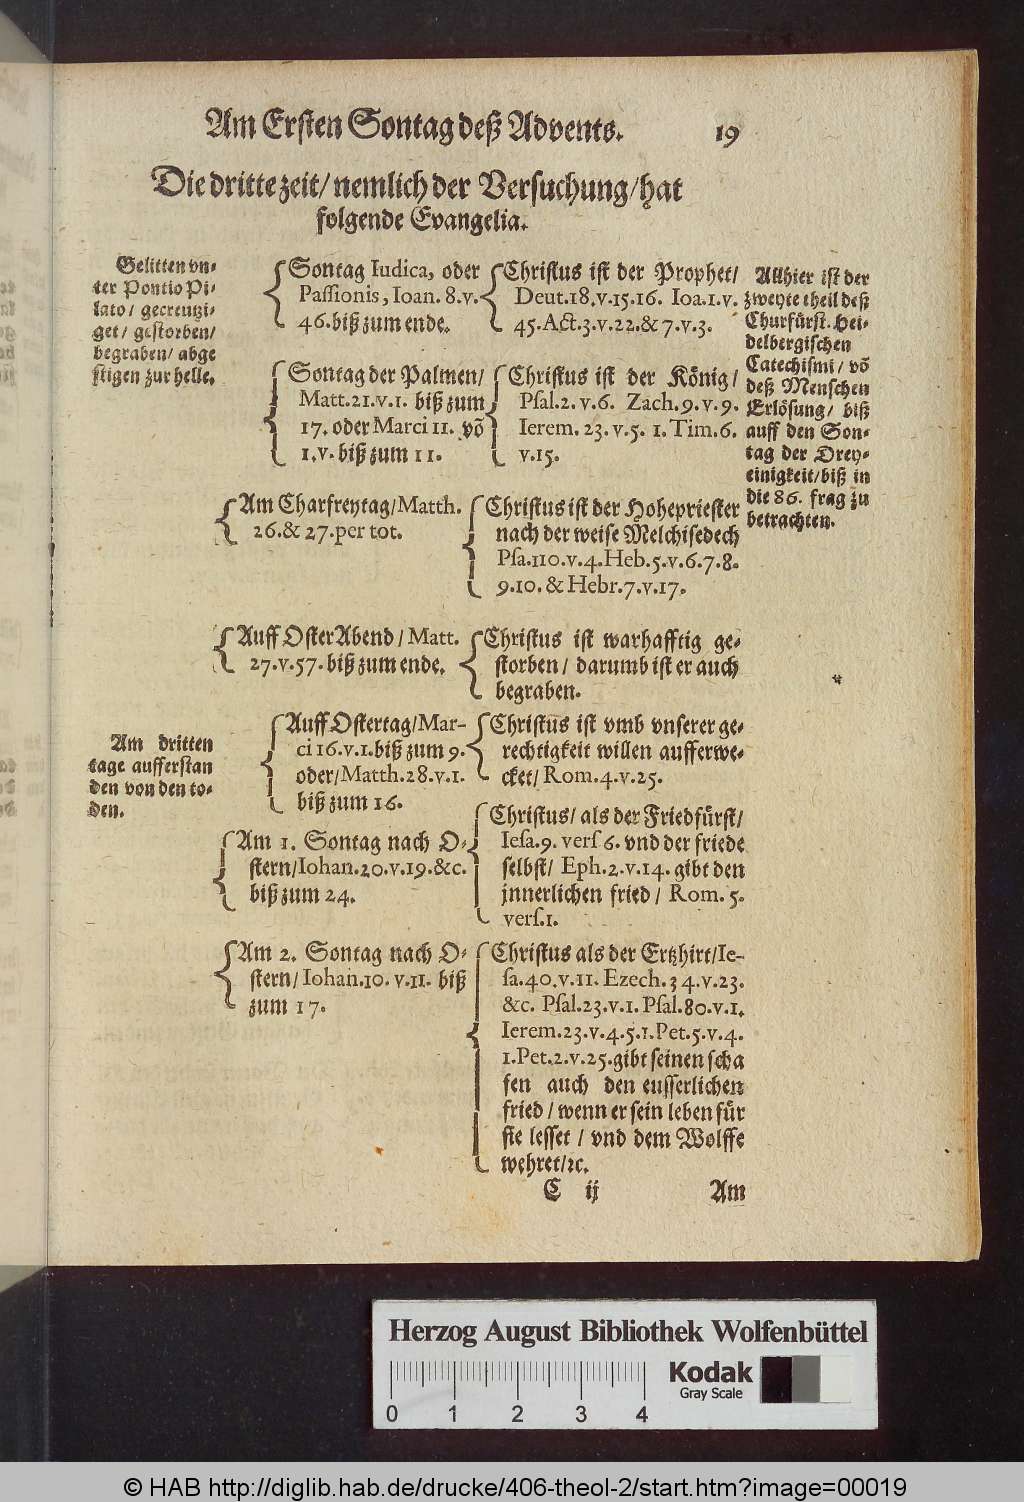 Am Ersten Sontag deß Advents. 19
Die dritte zeit/ nemlich der Versuchung/ hat
folgende Evangelia.
Gelitten vn-
ter Pontio Pi-
lato/ gecreutzi-
get/ gestorben/
begraben/ abge
stigen zur helle.
Sontag Iudica, oder
Passionis, Ioan. 8. v.
46. biß zum ende.
Christus ist der Prophet/
Deut. 18. v. 15. 16. Ioa. 1. v.
45. Act. 3. v. 22. & 7. v. 3.
Allhier ist der
zweyte theil deß
Churfürst. Hei-
delbergischen
Catechismi/ võ
deß Menschen
Erlösung/ biß
auff den Son-
tag der Drey-
einigkeit/ biß in
die 86. frag zu
betrachten.
Sontag der Palmen/
Matt. 21. v. 1. biß zum
17. oder Marci 11. võ
1. v. biß zum 11.
Christus ist der König/
Psal. 2. v. 6. Zach. 9. v. 9.
Ierem. 23. v. 5. 1. Tim. 6.
v. 15.
Am Charfreytag/ Matth.
26. & 27. per tot.
Christus ist der Hohepriester
nach der weise Melchisedech
Psa. 110. v. 4. Heb. 5. v. 6. 7. 8.
9. 10. & Hebr. 7. v. 17.
Auff OsterAbend/ Matt.
27. v. 57. biß zum ende.
Christus ist warhafftig ge-
storben/ darumb ist er auch
begraben.
Am dritten
tage aufferstan
den von den to-
den.
Auff Ostertag/ Mar-
ci 16. v. 1. biß zum 9.
oder/ Matth. 28. v. 1.
biß zum 16.
Christus ist vmb vnserer ge-
rechtigkeit willen aufferwe-
cket/ Rom. 4. v. 25.
Am 1. Sontag nach O-
stern/ Iohan. 20. v. 19. &c.
biß zum 24.
Christus/ als der Friedfürst/
Iesa. 9. vers 6. vnd der friede
selbst/ Eph. 2. v. 14. gibt den
jnnerlichen fried/ Rom. 5.
vers. 1.
Am 2. Sontag nach O-
stern/ Iohan. 10. v. 11. biß
zum 17.
Christus als der Ertzhirt/ Ie-
sa. 40. v. 11. Ezech. 34. v. 23.
&c. Psal. 23. v. 1. Psal. 80. v. 1.
Ierem. 23. v. 4. 5. 1. Pet. 5. v. 4.
1. Pet. 2. v. 25. gibt seinen scha
fen auch den eusserlichen
fried/ wenn er sein leben für
sie lesset/ vnd dem Wolffe
wehret/ ꝛc.
C ij Am
Herzog August Bibliothek Wolfenbüttel
Kodak
Gray Scale
0 1 2 3 4
© HAB http://diglib.hab.de/drucke/406-theol-2/start.htm?image=00019